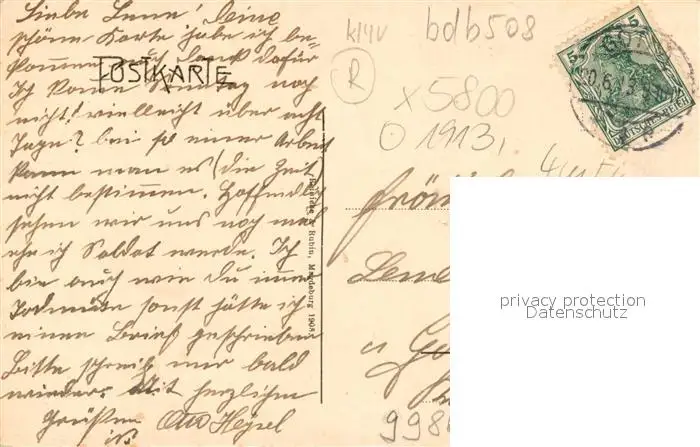 Liebe Lene! Deine
schöne Karte habe ich be-
kommen dafür
POSTKARTE
Ich kann Sonntag noch
nicht! vielleicht über acht
Tage? bei so einer Arbeit
kann man es (die Zeit
nicht bestimmen. Hoffendlich
sehen wir uns noch mal
ehe ich Soldat werde. Ich
bin auch wie du immer
Todmüde sonst hätte ich
einen Brief geschrieben
Bitte schreib mir bald
wieder. Mit herzlichen
Grüßen Otto
k14v bdb508
R
x5800
1913,
5 5
DEUTSCHES REICH
Rubin, Magdeburg 1908
Fräul
privacy protection
Datenschutz